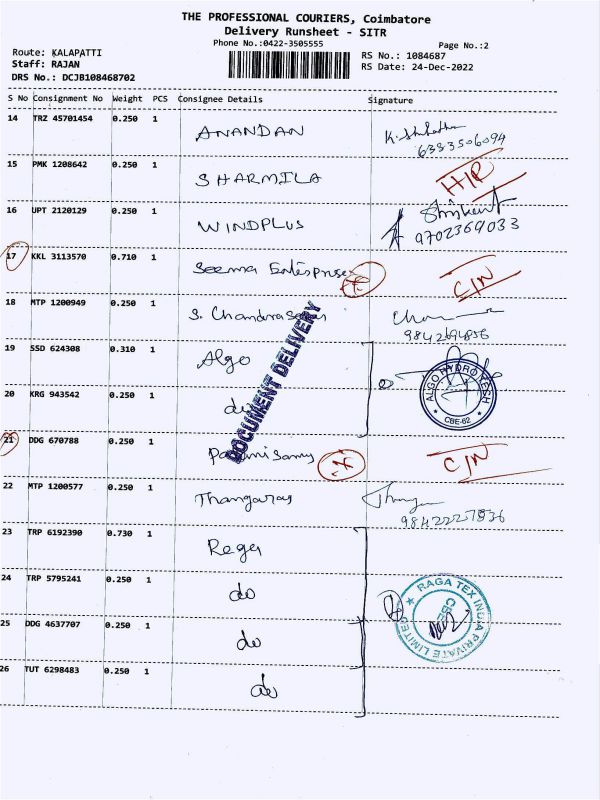 THE PROFESSIONAL COURIERS, Coimbatore
Delivery Runsheet - SITR
Phone No.:0422-3505555
Page No.:2
Route: KALAPATTI
RS No.: 1084687
Staff: RAJAN
RS Date: 24-Dec-2022
DRS No.: DCJB108468702
S No Consignment No Weight PCS Consignee Details Signature
14 TRZ 45701454 0.250 1 ANANDAN
6383506094
15 PMK 1208642 0.250 1 SHARMILA
16 UPT 2120129 0.250 1 WINDPLUS
9702369033
17 KKL 3113570 0.710 1 Seema Enterprises C/N
18 MTP 1200949 0.250 1 S. Chandrasekar
9842694856
DOCUMENT DELIVERY
19 SSD 624308 0.310 1 Algo
ALGO HYDRO TECH
CBE-62
20 KRG 943542 0.250 1 do
21 DDG 670788 0.250 1 Palanisamy C/N
22 MTP 1200577 0.250 1 Thangaraj
98422227836
23 TRP 6192390 0.730 1 Raga
24 TRP 5795241 0.250 1 do
RAGA TEX INDIA PRIVATE LIMITED
CBE
25 DDG 4637707 0.250 1 do
26 TUT 6298483 0.250 1 do